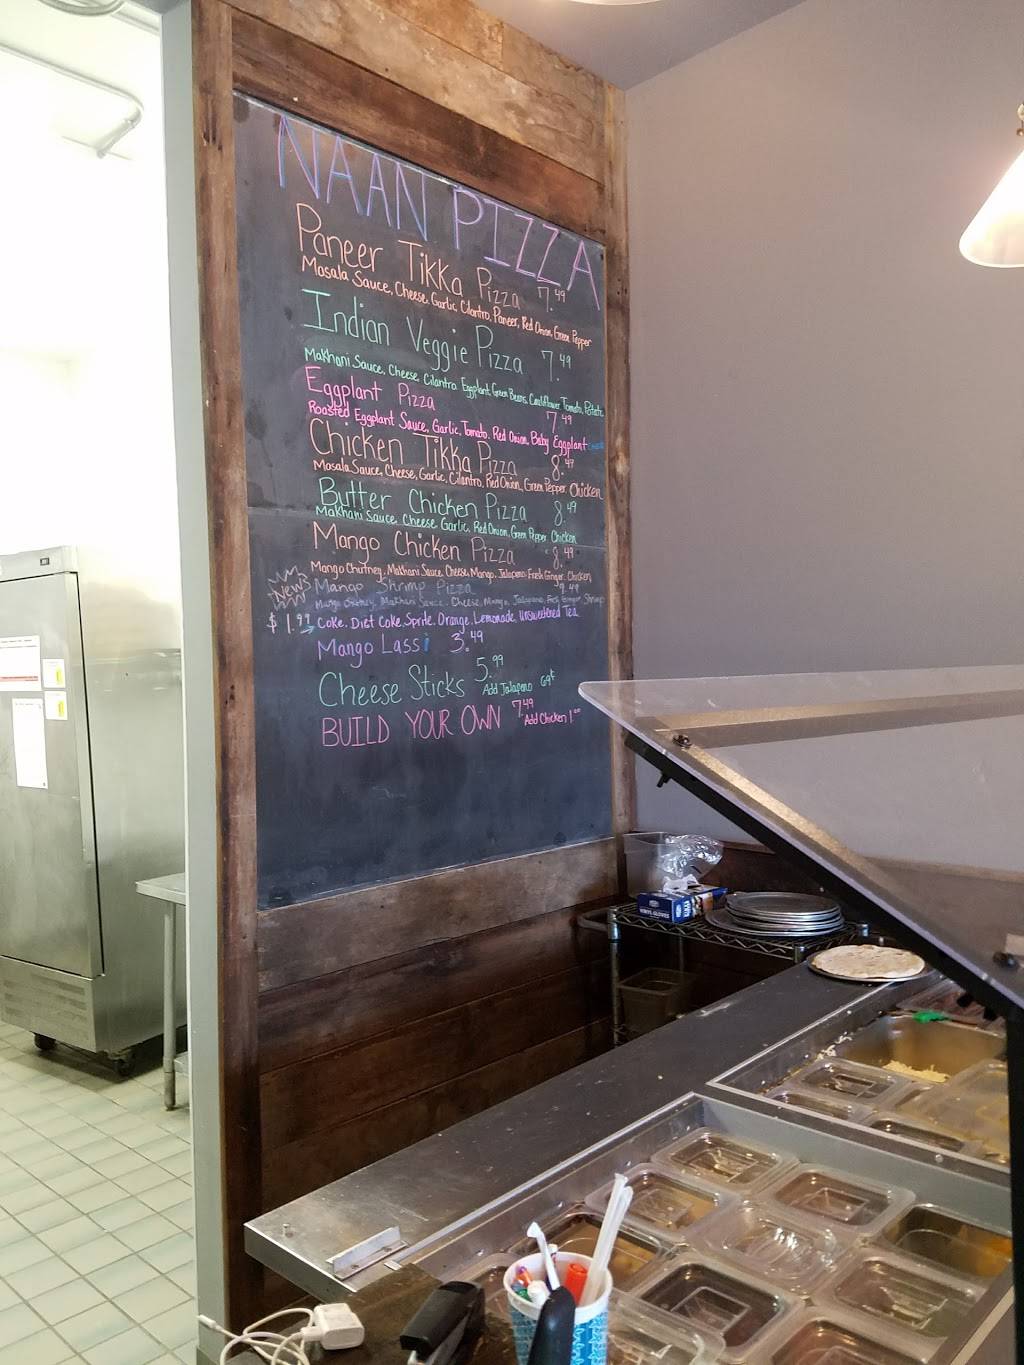 NAAN PIZZA
Paneer Tikka Pizza 7.49
Masala Sauce, Cheese, Garlic, Cilantro, Paneer, Red Onion, Green Pepper
Indian Veggie Pizza 7.49
Makhani Sauce, Cheese, Cilantro, Eggplant, Green Beans, Cauliflower, Tomato, Potato
Eggplant Pizza 7.49
Roasted Eggplant Sauce, Garlic, Tomato, Red Onion, Baby Eggplant
Chicken Tikka Pizza 8.49
Masala Sauce, Cheese, Garlic, Cilantro, Red Onion, Green Pepper, Chicken
Butter Chicken Pizza 8.49
Makhani Sauce, Cheese, Garlic, Red Onion, Green Pepper, Chicken
Mango Chicken Pizza 8.49
Mango Chutney, Makhani Sauce, Cheese, Mango, Jalapeno, Fresh Ginger, Chicken
New Mango Shrimp Pizza 9.49
Mango Chutney, Makhani Sauce, Cheese, Mango, Jalapeno, Fresh Ginger, Shrimp
$1.99 Coke, Diet Coke, Sprite, Orange, Lemonade, Unsweetened Tea
Mango Lassi 3.49
Cheese Sticks 5.99
Add Jalapeno 69¢
BUILD YOUR OWN 7.49
Add Chicken 1.00
VINYL GLOVES